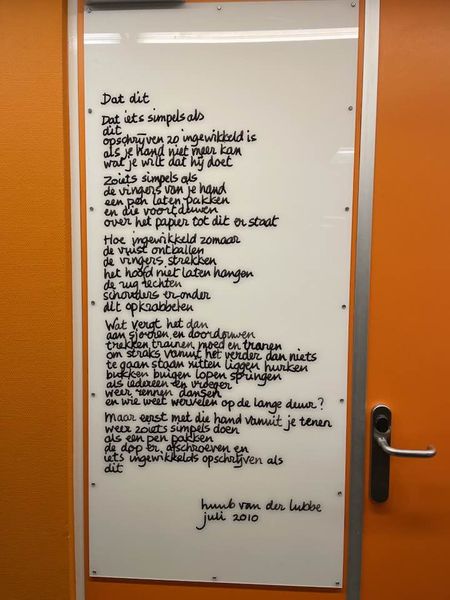 Dat dit
Dat iets simpels als
dit
opschrijven zo ingewikkeld is
als je hand niet meer kan
wat je wilt dat hij doet
Zoiets simpels als
de vingers van je hand
een pen laten pakken
en die voortduwen
over het papier tot dit er staat
Hoe ingewikkeld zomaar
de vuist ontballen
de vingers strekken
het hoofd niet laten hangen
de rug rechten
schouders eronder
dit opkrabbelen
Wat vergt het dan
aan sjorren en doordouwen
trekken trainen moed en tranen
om straks vanuit het verder dan niets
te gaan staan zitten liggen hurken
bukken buigen lopen springen
als iedereen en vroeger
weer rennen dansen
en wie weet wervelen op de lange duur?
Maar eerst met die hand vanuit je tenen
weer zoiets simpels doen
als een pen pakken
de dop er afschroeven en
iets ingewikkelds opschrijven als
dit
huub van der lubbe
juli 2010